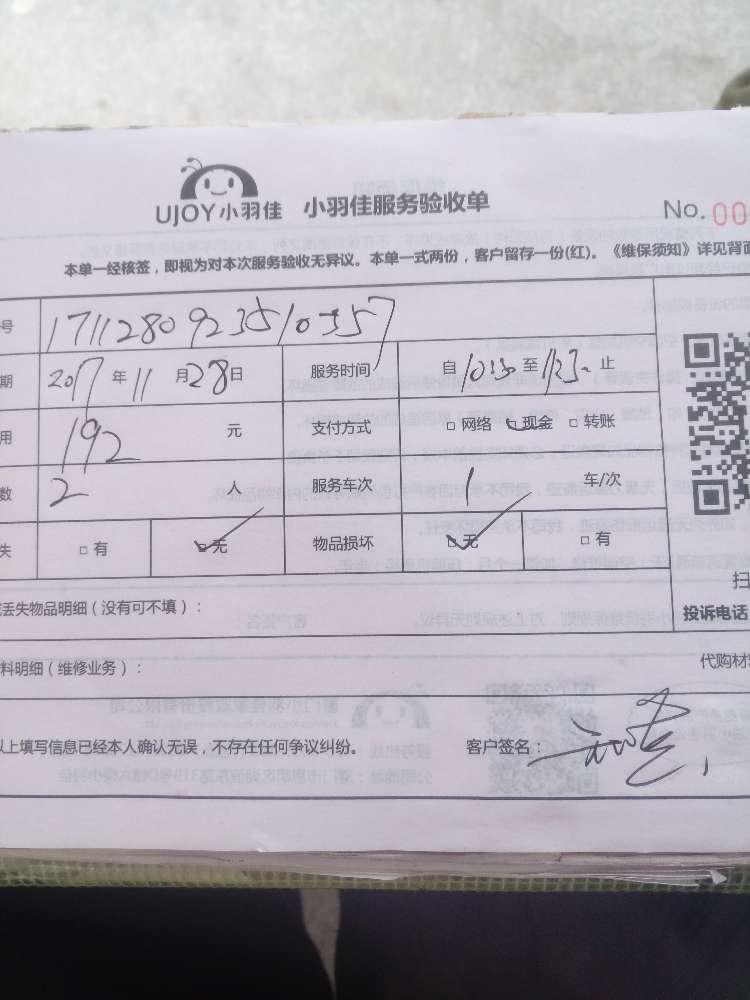 UJOY小羽佳 小羽佳服务验收单
No. 00
本单一经核签，即视为对本次服务验收无异议。本单一式两份，客户留存一份(红)。《维保须知》详见背面
号 1711280923510357
期 2017 年 11 月 28 日 服务时间 自 至 止
用 192 元 支付方式 □ 网络 □ 现金 □ 转账
数 2 人 服务车次 1 车/次
失 □ 有 □ 无 物品损坏 □ 无 □ 有
扫
丢失物品明细（没有可不填）：
投诉电话
料明细（维修业务）：
代购材
以上填写信息已经本人确认无误，不存在任何争议纠纷。 客户签名：